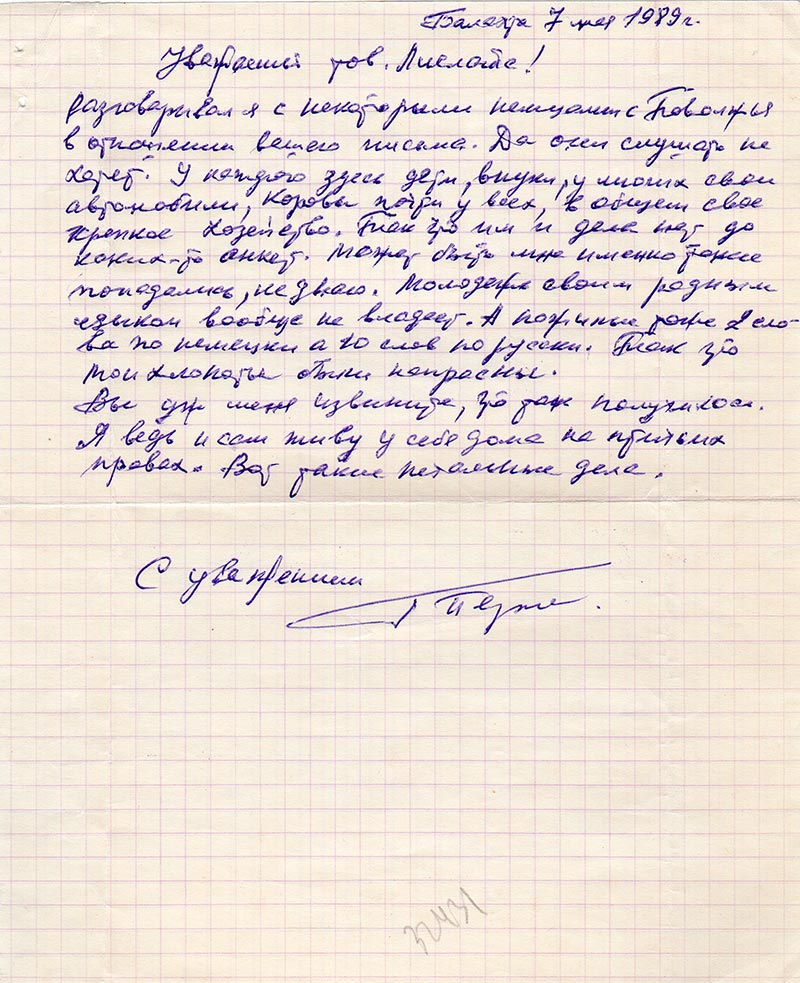 Балахта 7 мая 1989 г.
Уважаемый тов.
разговаривал я с некоторыми немцами с Поволжья
в отношении вашего письма. Да они слушать не
хотят. У каждого здесь дети, внуки, у многих свои
автомобили, коровы почти у всех, в общем свое
крепкое хозяйство. Так что им и дела нет до
каких-то анкет. Может быть мне именно такие
попадались, не знаю. Молодежь своим родным
языком вообще не владеет. А пожилые тоже 2 сло-
ва по немецки а 20 слов по русски. Так что
мои хлопоты были напрасны.
Вы уж меня извините, что так получилось.
Я ведь и сам живу у себя дома на птичьих
правах. Вот такие печальные дела.
С уважением
32431